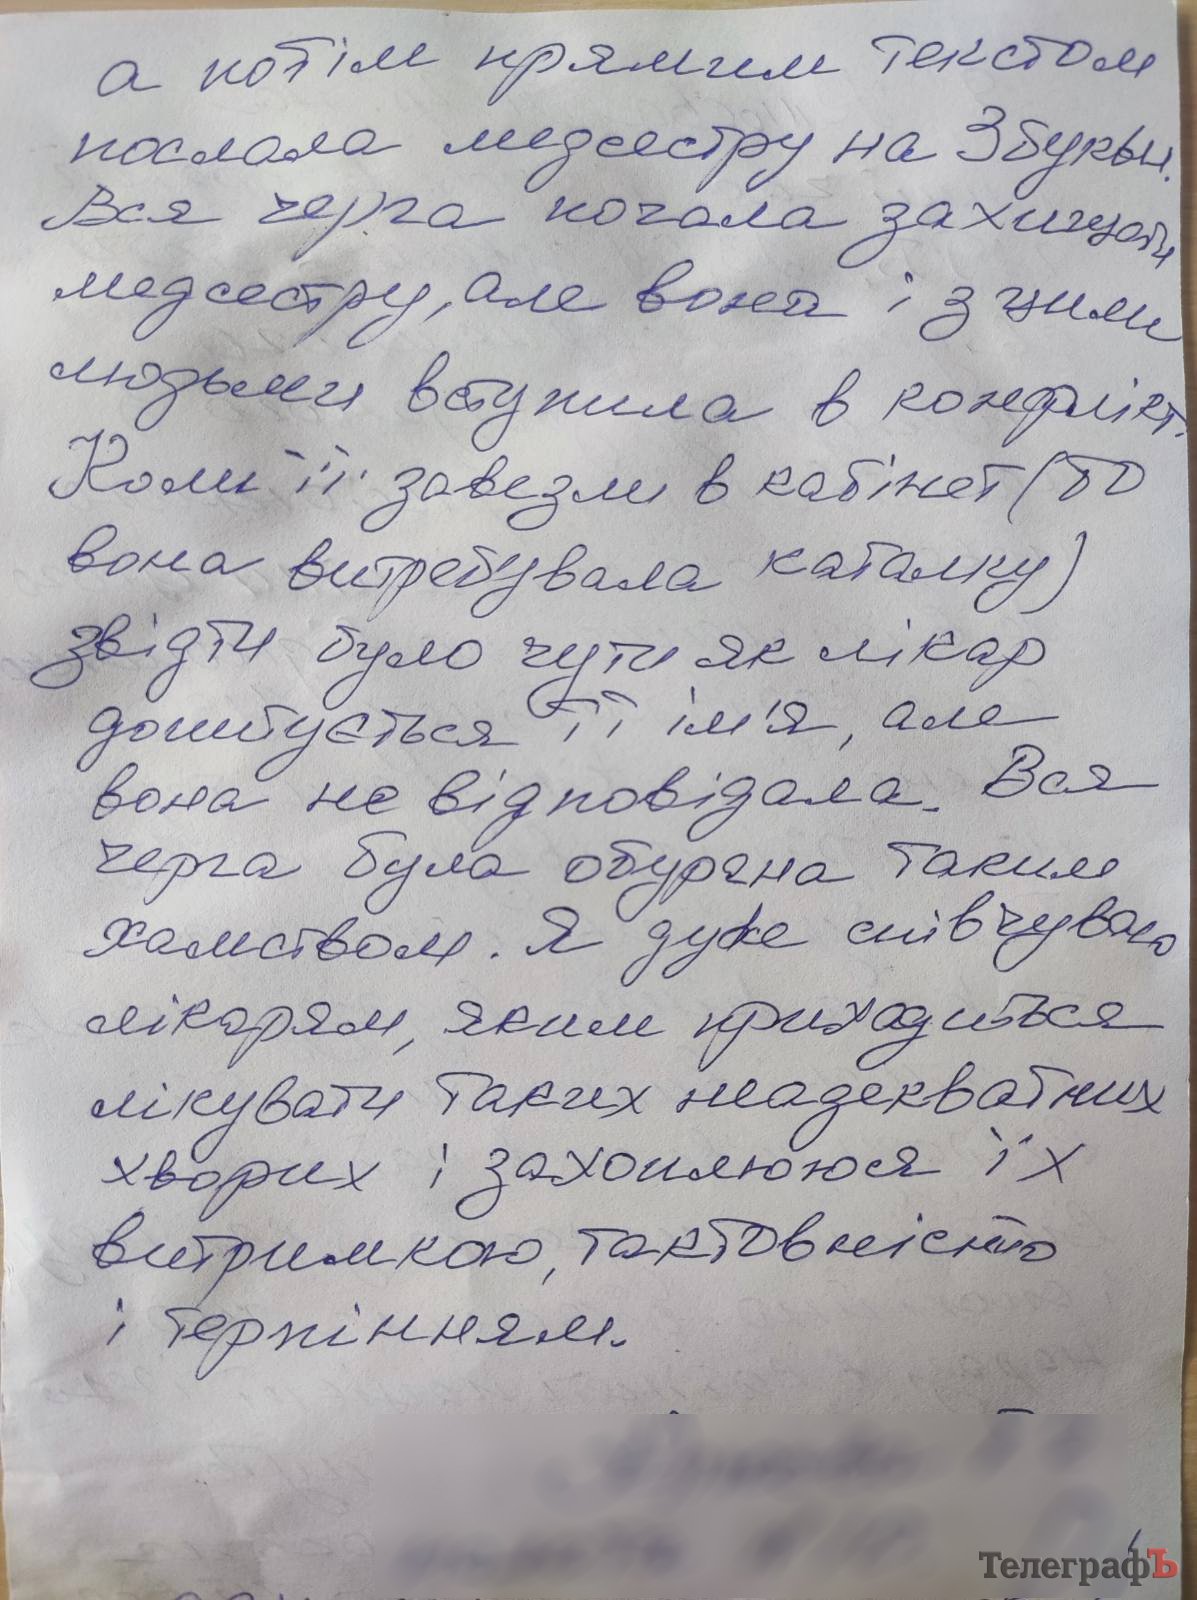 а потім прямим текстом
послала медсестру на 3 букви.
Вся черга почала захищати
медсестру, але вона і з цими
людьми вступила в конфлікт.
Коли її завезли в кабінет (бо
вона витребувала каталку)
звідти було чути як лікар
допитується її ім'я, але
вона не відповідала. Вся
черга була обурена таким
хамством. Я дуже співчуваю
лікарям, яким приходиться
лікувати таких неадекватних
хворих і захоплююся їх
витримкою, тактовністю
і терпінням.
ТелеграфЪ